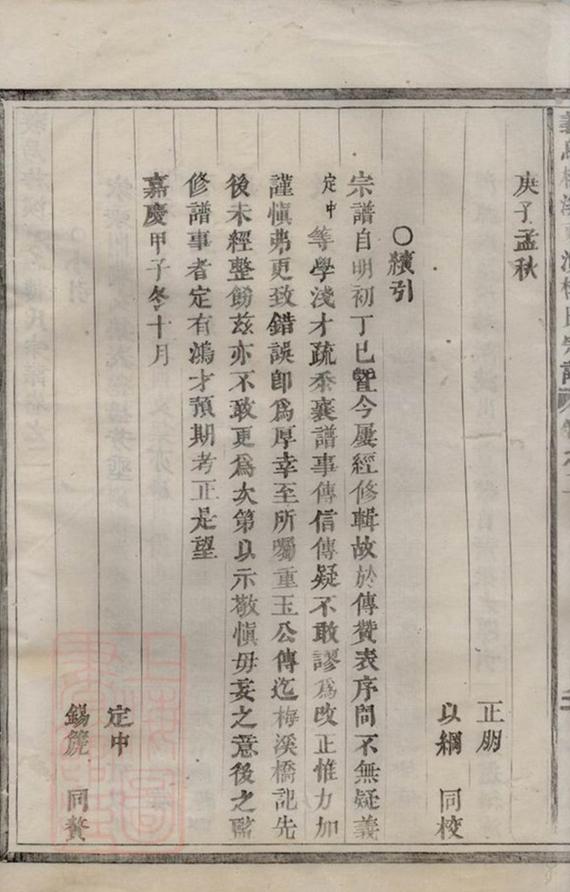 庚子孟秋
正朋
以綱 同校
○續引
宗譜自明初丁巳暨今屢經修輯故於傳贊表序間不無疑義
定中等學淺才疏忝襄譜事傳信傳疑不敢謬為改正惟力加
謹愼弗更致錯誤卽爲厚幸至所囑重玉公傳迄梅溪橋記先
後未經整飭茲亦不敢更爲次第以示敬愼毋妄之意後之監
修譜事者定有鴻才預期考正是望
嘉慶甲子冬十月
定中
錫簏 同贅